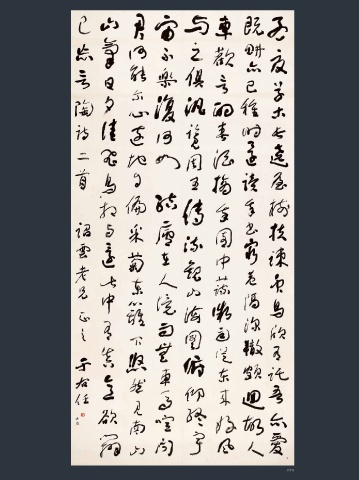 孟夏草木長遶屋樹扶疎眾鳥欣有託吾亦愛
既耕亦已種時還讀我書窮巷隔深轍頗迴故人
車歡言酌春酒摘我園中蔬微雨從東來好風
與之俱汎覽周王傳流觀山海圖俯仰終宇
宙不樂復何如 結廬在人境而無車馬喧問
君何能爾心遠地自偏采菊東籬下悠然見南山
山氣日夕佳飛鳥相與還此中有真意欲辯
已忘言 陶詩二首 雲老兄正之 于右任